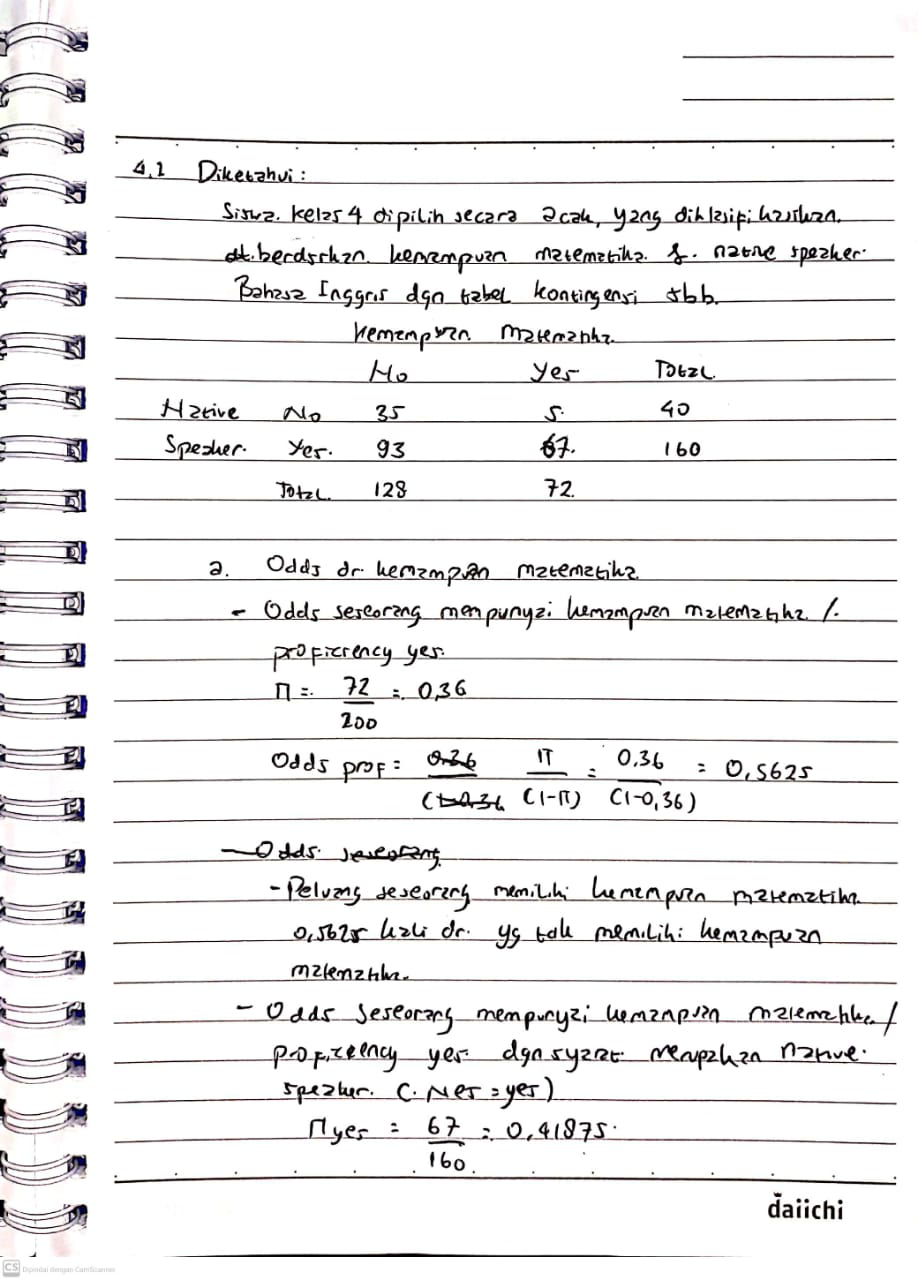 4.1 Diketahui :
Siswa kelas 4 dipilih secara acak, yang diklasifikasikan
dt. berdsrkan kemampuan matematika & native speaker
Bahasa Inggris dgn tabel kontingensi sbb.
Kemampuan Matematika
No Yes Total
Native No 35 5 40
Speaker Yes 93 67 160
Total 128 72
a. Odds dr kemampuan matematika
- Odds seseorang mempunyai kemampuan matematika /
proficiency yes.
Π = 72/200 = 0,36
Odds prof = 0.36/(1-0,36 Π/(1-Π) = 0,36/(1-0,36) = 0,5625
- Odds seseorang
- Peluang seseorang memiliki kemampuan matematika
0,5625 kali dr. yg tak memiliki kemampuan
matematika.
- Odds seseorang mempunyai kemampuan matematika /
proficiency yes dgn syarat merupakan native
speaker. (Nes = yes)
Π yes = 67/160 = 0,41875
daiichi
CS Dipindai dengan CamScanner